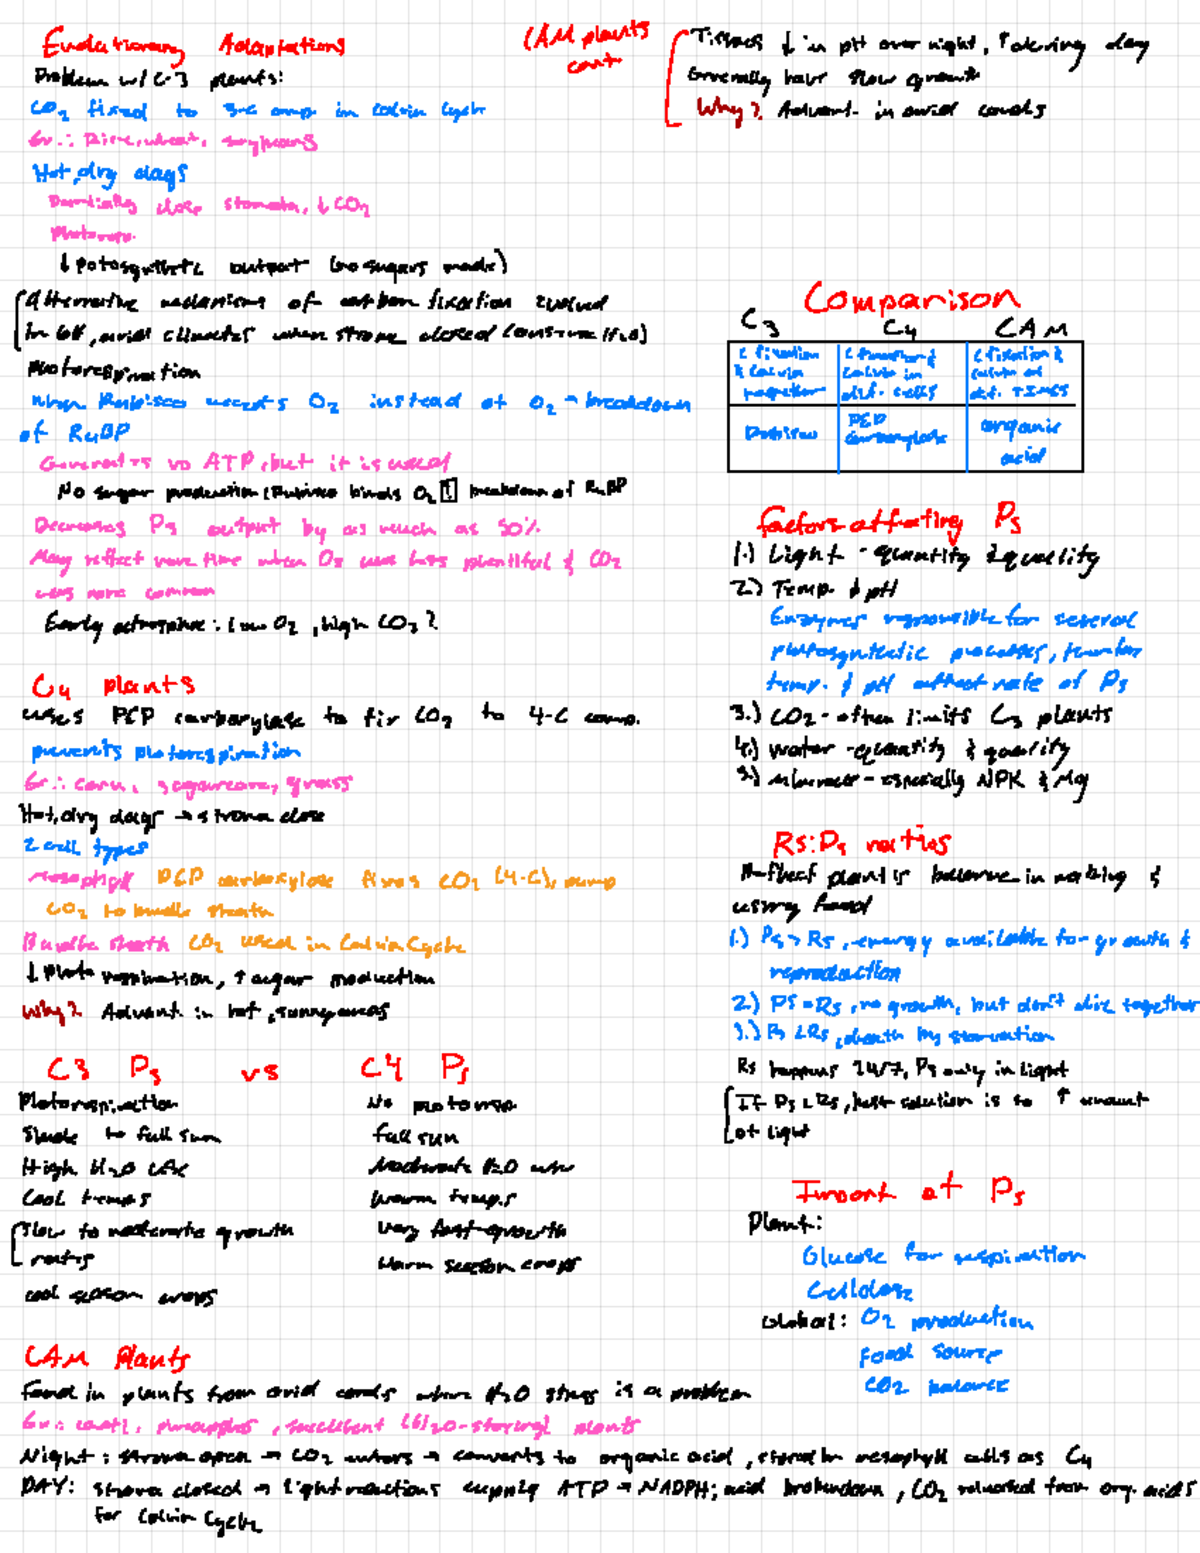 Evolutionary Adaptations
Problem w/ C-3 plants:
CO2 fixed to 3-C comp in Calvin Cycle
Ex.: Rice, wheat, soybeans
Hot, dry days
Partially close stomata, ↓ CO2
photoresp.
↓ potosynthetic output (no sugars made)
Alternative mechanisms of carbon fixation evolved
in hot, arid climates when stroma closed (conserve H2O)
Photorespiration
when Rubisco accepts O2 instead of O2 → breakdown
of RuBP
Generates no ATP, but it is used
No sugar production (Rubisco binds O2 breakdown of RuBP
Decreases Ps output by as much as 50%
May reflect time when O2 was less plentiful & CO2
was more common
Early atmosphere: low O2, high CO2?
C4 plants
uses PEP carboxylase to fix CO2 to 4-C comp.
prevents photorespiration
Ex.: corn, sugarcane, grass
Hot, dry days → stroma close
2 cell types
mesophyll PEP carboxylase fixes CO2 (4-C), pump
CO2 to bundle sheath
Bundle sheath CO2 used in Calvin Cycle
↓ photo respiration, ↑ sugar production
Why? Advant. in hot, sunny areas
C3 Ps vs C4 Ps
Photorespiration No photoresp
Shade to full sun full sun
High H2O use Moderate H2O use
Cool temps warm temps
Slow to moderate growth very fast growth
rates Warm season crops
cool season crops
CAM Plants
Found in plants from arid conds where H2O stress is a problem
Ex.: cacti, pineapples, succulent (H2O-storing) plants
Night: stroma open → CO2 enters → converts to organic acid, stored in mesophyll cells as C4
DAY: stroma closed → light reactions supply ATP → NADPH; acid brokendown, CO2 released from org. acids
for Calvin Cycle
CAM plants
cont
Tissues ↓ in pH over night, ↑ during day
Generally have slow growth
Why? Advant. in arid conds
Comparison
C3 C4 CAM
C fixation C fixation & C fixation &
& Calvin Calvin in Calvin at
together dif. cells dif. TIMES
Rubisco PEP carboxylase organic acid
Factors affecting Ps
1.) Light - quantity & quality
2.) Temp. & pH
Enzymes responsible for several
photosynthetic processes, therefore
temp. & pH affect rate of Ps
3.) CO2 - often limits C3 plants
4.) water - quantity & quality
5.) - especially NPK & Mg
Rs:Ps ratios
Reflect plant's balance in making &
using food
1.) Ps > Rs, energy available for growth &
reproduction
2.) Ps = Rs, no growth, but don't die together
3.) Ps < Rs, death by starvation
Rs happens 24/7, Ps only in light
If Ps < Rs, best solution is to ↑ amount
of light
Import of Ps
Plant:
Glucose for respiration
Cellulose
Global: O2 production
Food source
CO2 balance